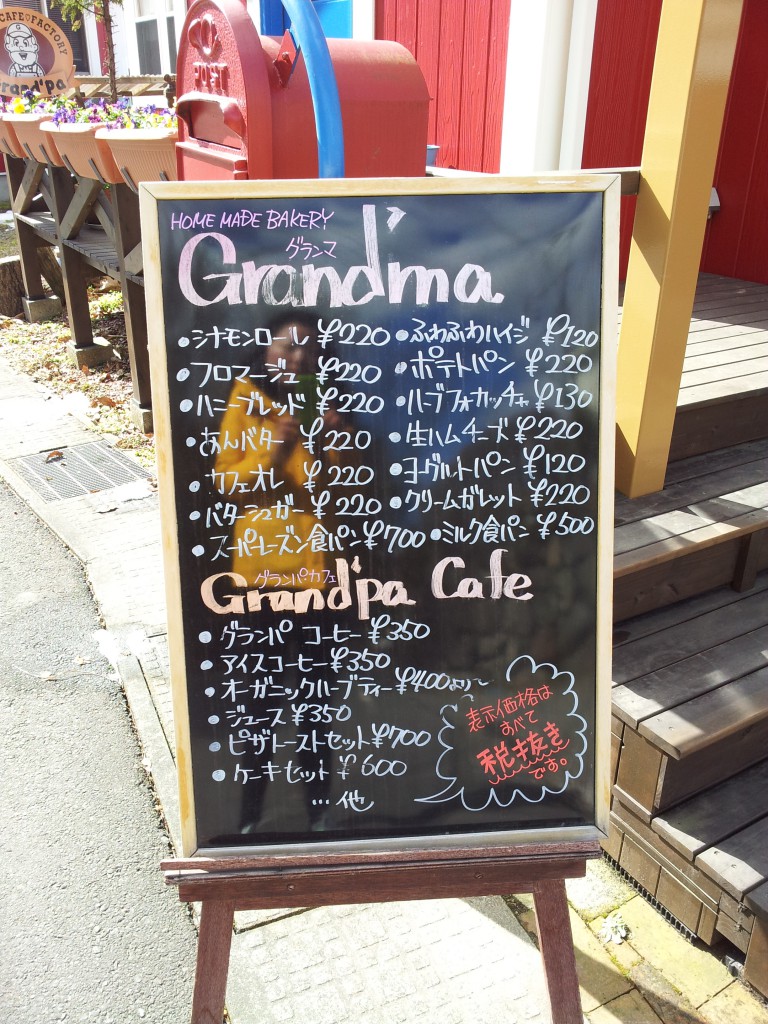 CAFE FACTORY
Grand'pa
POST
HOME MADE BAKERY
グランマ
Grand'ma
•シナモンロール ¥220 •ふわふわハイジ ¥120
•フロマージュ ¥220 •ポテトパン ¥220
•ハニーブレッド ¥220 •ハーブフォカッチャ ¥130
•あんバター ¥220 •生ハムチーズ ¥220
•カフェオレ ¥220 •ヨーグルトパン ¥120
•バターシュガー ¥220 •クリームガレット ¥220
•スーパーレーズン食パン ¥700 •ミルク食パン ¥500
グランパ・カフェ
Grand'pa Cafe
•グランパ コーヒー ¥350
•アイスコーヒー ¥350
•オーガニックハーブティー ¥400より〜
•ジュース ¥350
•ピザトーストセット ¥700
•ケーキセット ¥600
…他
表示価格は
すべて
税抜き
です。